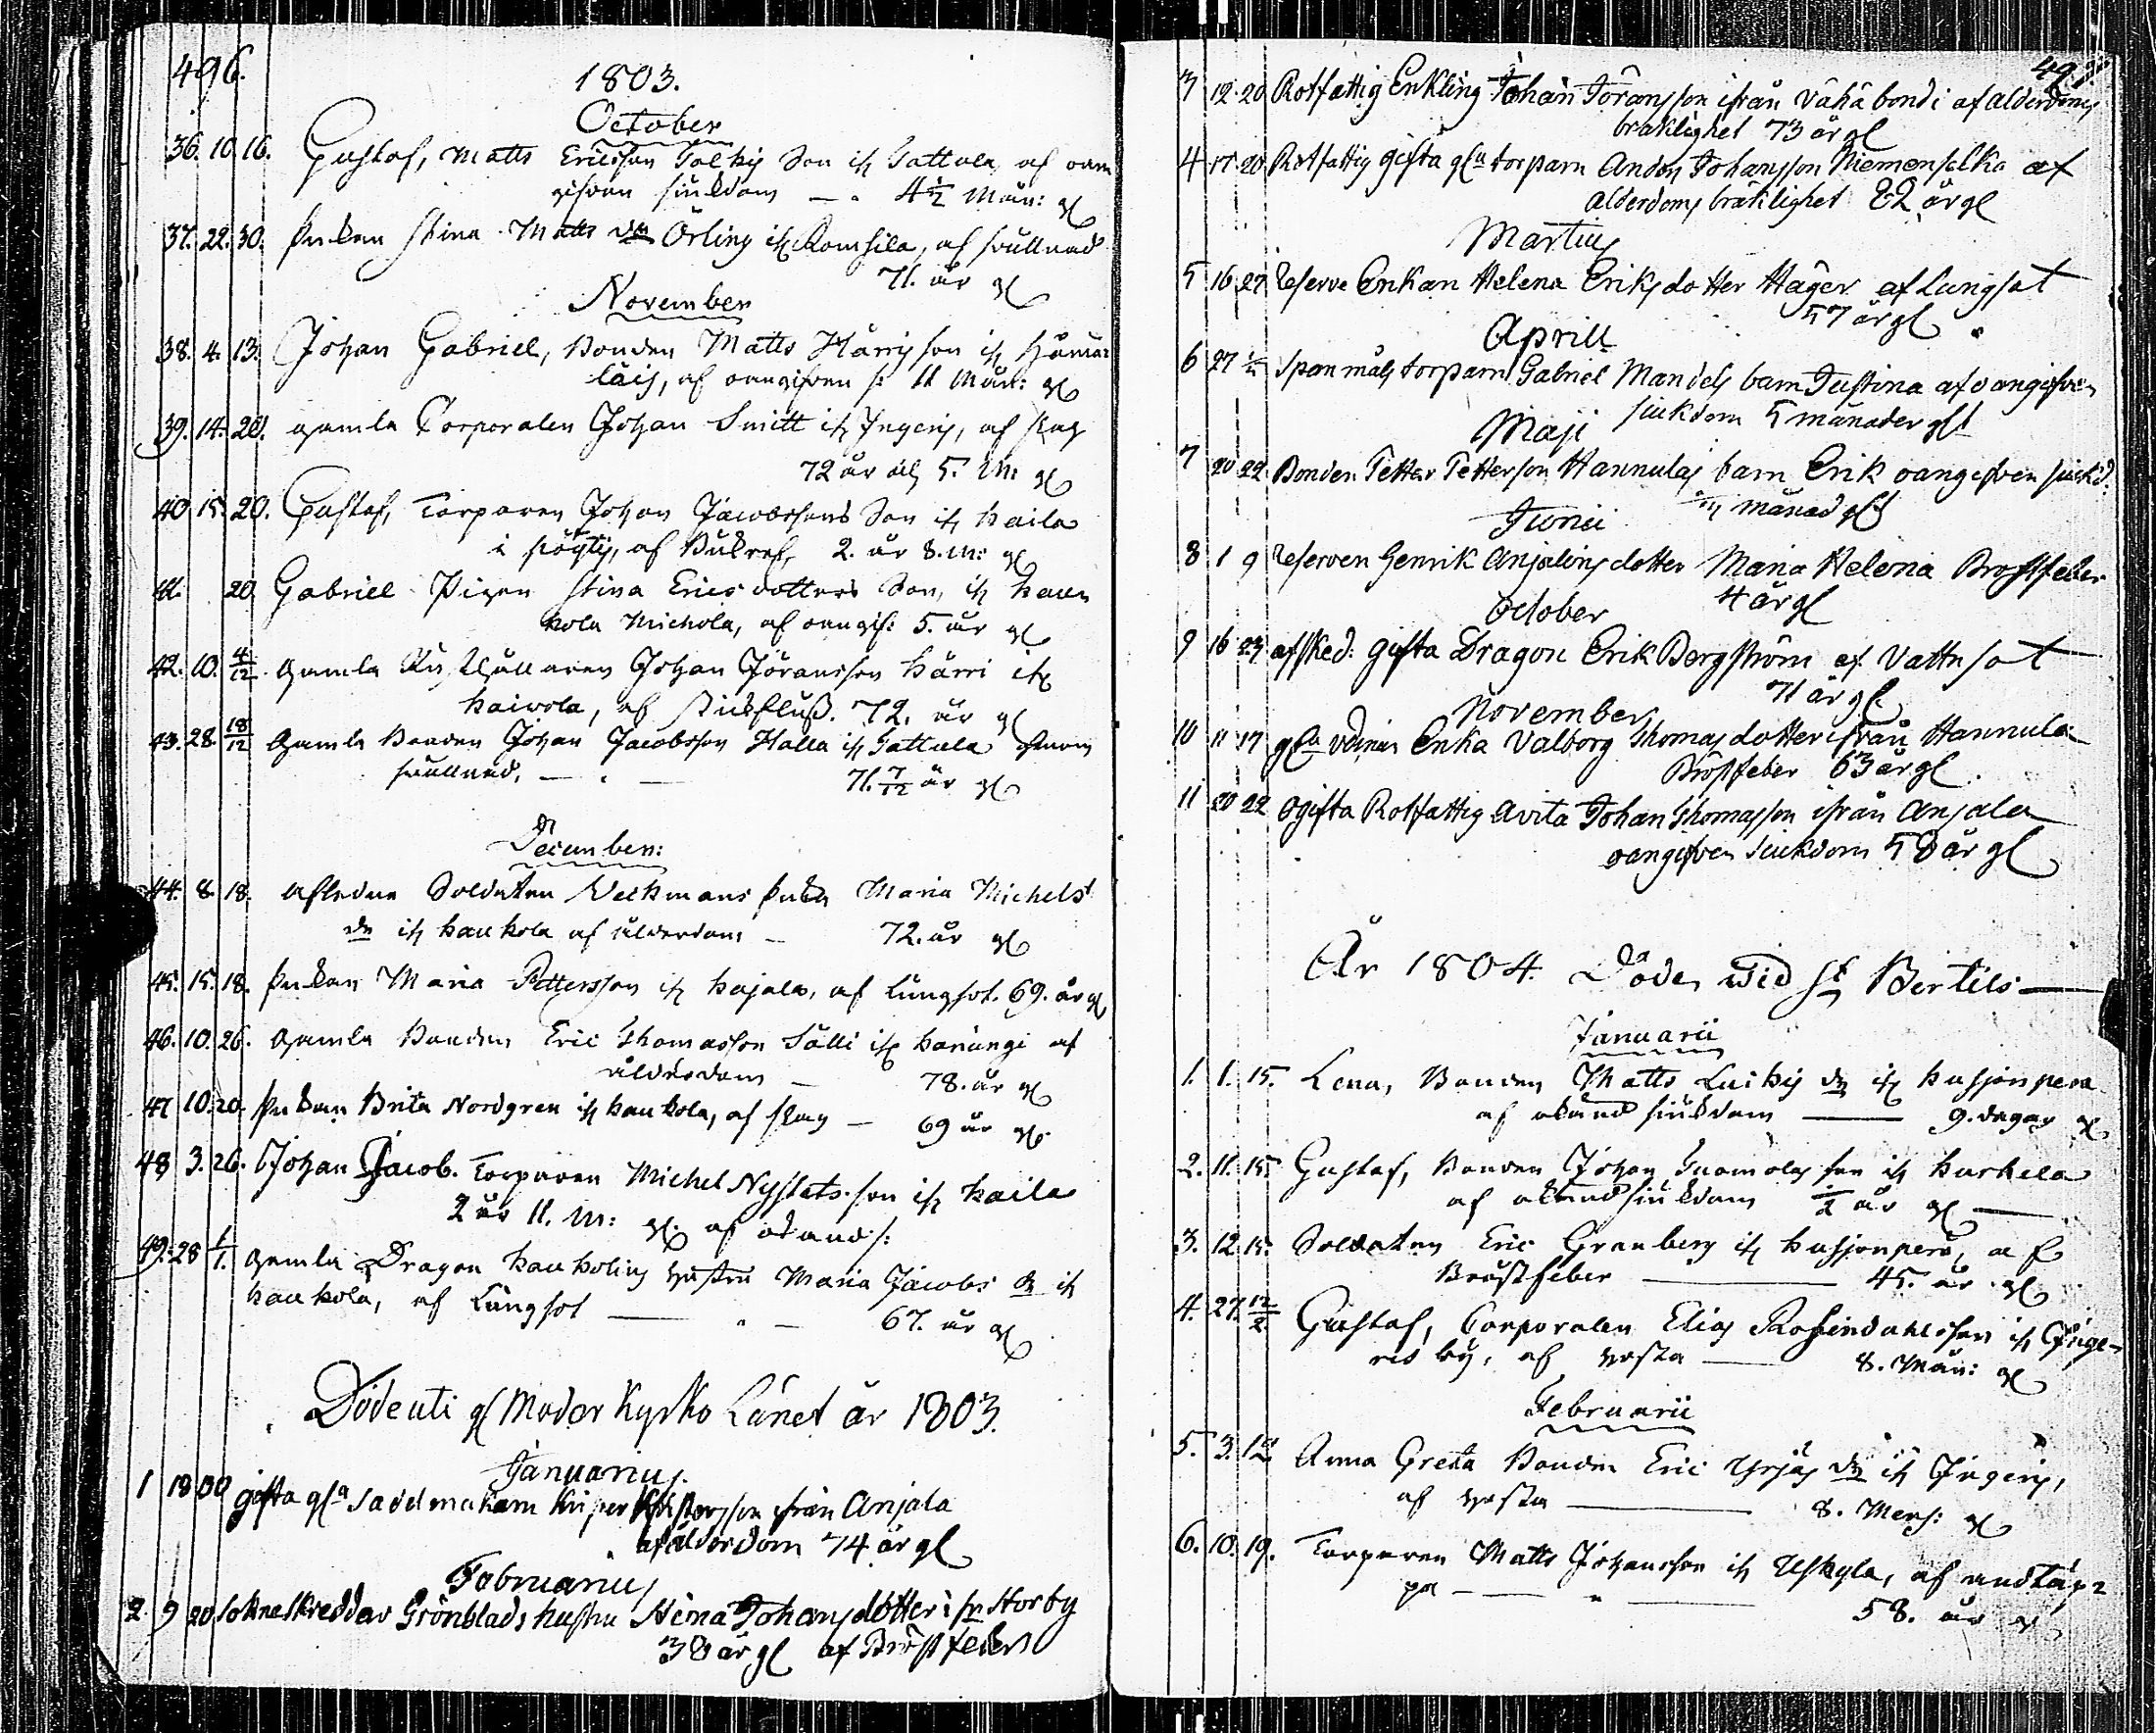 496.
1803.
October
36. 10. 16. Gustaf, Matts Ericsson son ifr Sattula, af oan
gifven siukdom — 4 1/2 Mån: gl
37. 22. 30. Enkan Stina Matts dr Örling ifr Romsila, af svullnad
71. år gl
November
38. 4. 13. Johan Gabriel, Bonden Matts son ifr Hämä:
läis, af oangifven s: 11 Mån: gl
39. 14. 20. gamla Corporalen Johan Smitt ifr Ingeris, af slag
72 år 5. M: gl
40 15. 20. Gustaf, Torparen Johan Jacobssons Son ifr Haila
i af Bukref, 2. år 8. m: gl
41. 20 Gabriel Pigan Stina Erics dotters Son, ifr Hau
kola Michola, af oangif: 5. år gl
42. 10. 4/12 gamla Johan Jöransson Härri ifr
Kaivola, af 72. år gl
43. 28. 18/12 Gamla Bonden Johan Jacobsson Halla ifr Sattula genom
svullnad, — 71. 7/12 år gl
December:
44. 8. 18. Afledne Soldaten Veckmans Enka Maria Michels
dr ifr Haukola af ålderdom — 72. år gl
45. 15. 18. Enkan Maria Pettersson ifr Hajala, af Lungsot. 69. år gl
46. 10. 26. Gamla Bonden Eric Thomasson Sälli ifr Hanangi af
ålderdom — 78. år gl
47 10. 20. Enkan Brita Nordgren ifr Haukola, af slag — 69 år gl
48 3. 26. Johan Jacob. Torparen Michel Nystets son ifr Haila
2 år 11. M: gl. af okänd s:
49. 28 1/1. gamla Dragon Haukolins hustru Maria Jacobs dr ifr
Haukola, af Lungsot — 67. år gl
Döde uti gl Moder Kyrko Länet år 1803.
Januarius.
1 18 30 gifta gla sadelmakarn Christersson från Anjala
af ålderdom 74 år gl
Februarius
2 9 20 Sokneskreddar Grönblads hustru Stina Johansdotter i fr Storby
38 år gl af Bröstfeber
497
3 12. 20 Rotfattig Enkling Johan Göransson ifrån Vähä bond i af alderdoms
bräklighet 73 år gl
4 17. 20 Rotfattig gifta gla torparn Anders Johansson Niemenselkä af
Alderdoms bräklighet 82 år gl
Martius
5 16 27 Reserve Enkan Helena Eriksdotter Häger af Lungsot
57 år gl
Aprill
6 27 Spanmåls torparn Gabriel Mandels barn Justina af oangifven
siukdom 5 månader gl
Maji
7 20 22 Bonden Petter Petterson Hannulas barn Erik oangifven siukd:
månad gl
Junii
8 1 9 Reserven Henrik Anjalins dotter Maria Helena Bröstfeber
4 år gl
October
9 16 23 afsked: gifta Dragon Erik Bergström af Vattusot
71 år gl
November
10 11 17 gla Enka Valborg Thomas dotter ifrån Hannula
Bröstfeber 63 år gl
11 20 22 ogifta Rotfattig Avita Johan Thomasson ifrån Anjala
oangifven siukdom 58 år gl
År 1804. Döde, wid St Bertils
Januarii
1. 1. 15. Lena, Bonden Matts dr ifr Husjonpera
af okänd siukdom — 9. dagar gl
2. 11. 15. Gustaf, Bonden Johan son ifr Hurkela
af okänd siukdom 1/2 år gl —
3. 12. 15. Soldaten Eric Granberg ifr Husjonperä, af
Bröstfeber — 45. år gl
4. 27. 12/2. Gustaf, Corporalen Elias Rosendahls son ifr Inge-
ris by, af hosta — 8. Mån: gl
Februarii
5. 3. 12. Anna Greta Bonden Eric Yrjäs dr ifr Ingeris,
af hosta — 8. Mens: gl
6. 10. 19. Torparen Matts Johansson ifr Uskyla, af andtäp
pa — 58. år gl